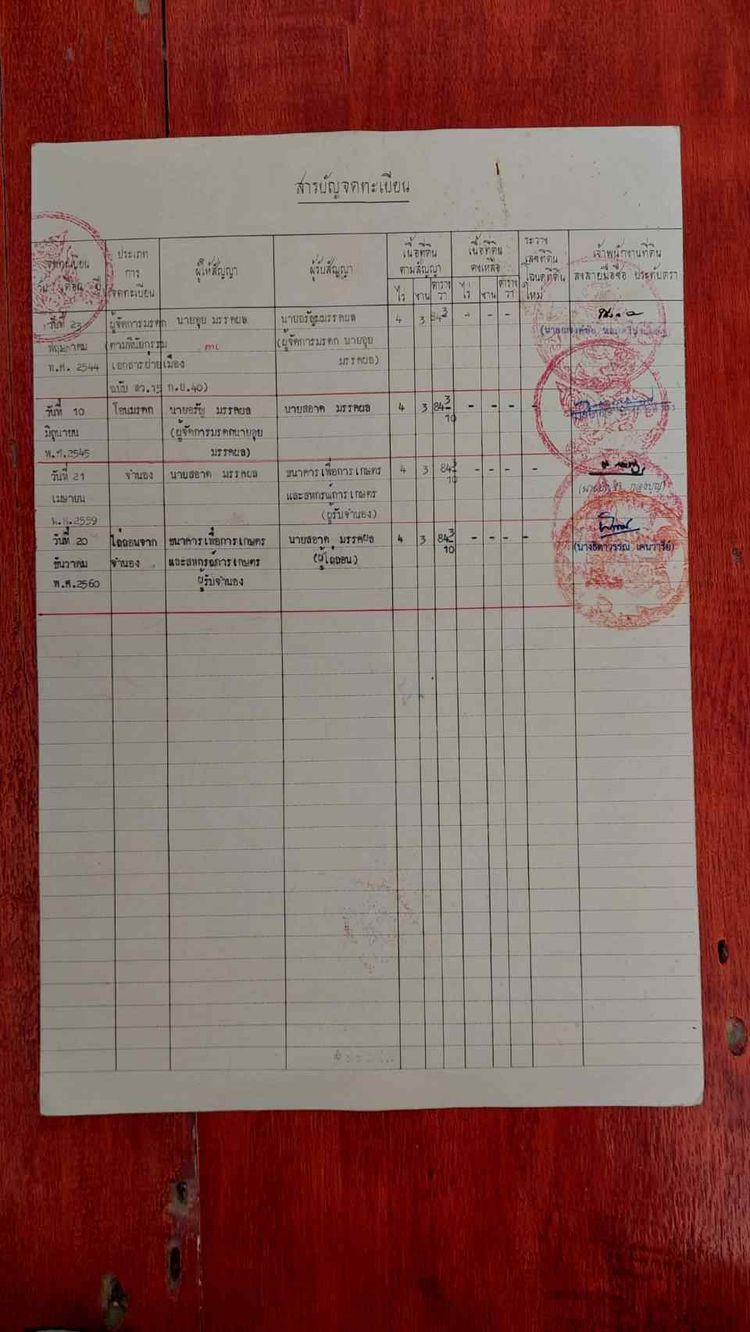 สารบัญจดทะเบียน
จดทะเบียน
วัน เดือน ปี
ประเภท
การ
จดทะเบียน
ผู้ให้สัญญา
ผู้รับสัญญา
เนื้อที่ดิน
ตามสัญญา
ไร่ งาน ตาราง
วา
เนื้อที่ดิน
คงเหลือ
ไร่ งาน ตาราง
วา
ระวาง
เลขที่ดิน
โฉนดที่ดิน
ใหม่
เจ้าพนักงานที่ดิน
ลงลายมือชื่อ ประทับตรา
วันที่ 23 ผู้จัดการมรดก นายอุย มรรคผล นายอรัญ มรรคผล 4 3 84 3
พฤษภาคม (ตามพินัยกรรม (ผู้จัดการมรดก นายอุย
พ.ศ. 2544 เอกสารฝ่ายเมือง มรรคผล)
ฉบับ ลว.15 ก.ย.40)
วันที่ 10 โอนมรดก นายอรัญ มรรคผล นายสอาด มรรคผล 4 3 84 3/10 - - - -
มิถุนายน (ผู้จัดการมรดกนายอุย
พ.ศ.2545 มรรคผล)
วันที่ 21 จำนอง นายสอาด มรรคผล ธนาคารเพื่อการเกษตร 4 3 84 3/10 - - - -
เมษายน และสหกรณ์การเกษตร
พ.ศ.2559 (ผู้รับจำนอง)
วันที่ 20 ไถ่ถอนจาก ธนาคารเพื่อการเกษตร นายสอาด มรรคผล 4 3 84 3/10 - - - -
ธันวาคม จำนอง และสหกรณ์การเกษตร (ผู้ไถ่ถอน)
พ.ศ.2560 ผู้รับจำนอง